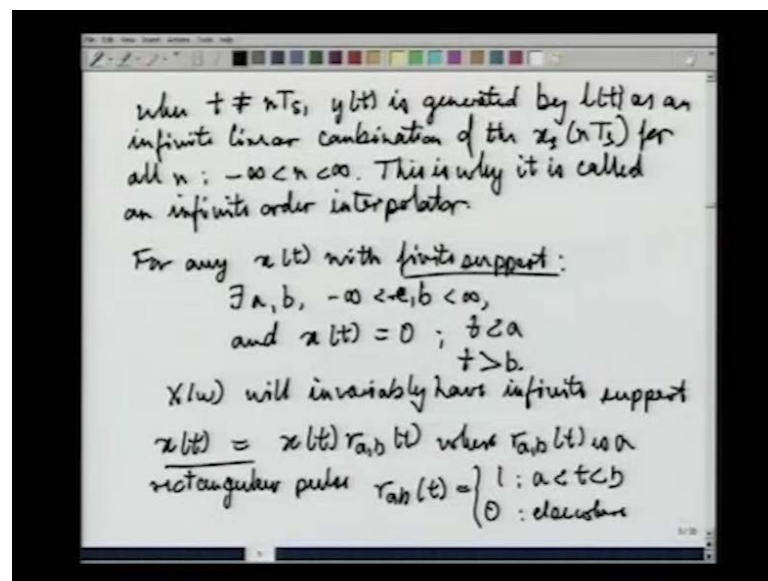 when t ≠ nTs, y(t) is generated by h(t) as an
infinite linear combination of the xs(nTs) for
all n : -∞ < n < ∞. This is why it is called
an infinite order interpolator.
For any x(t) with finite support :
∃ a, b, -∞ < a, b < ∞,
and x(t) = 0 ; t < a
t > b.
X(ω) will invariably have infinite support
x(t) = x(t) ra,b(t) where ra,b(t) is a
rectangular pulse rab(t) = { 1 : a < t < b
0 : elsewhere